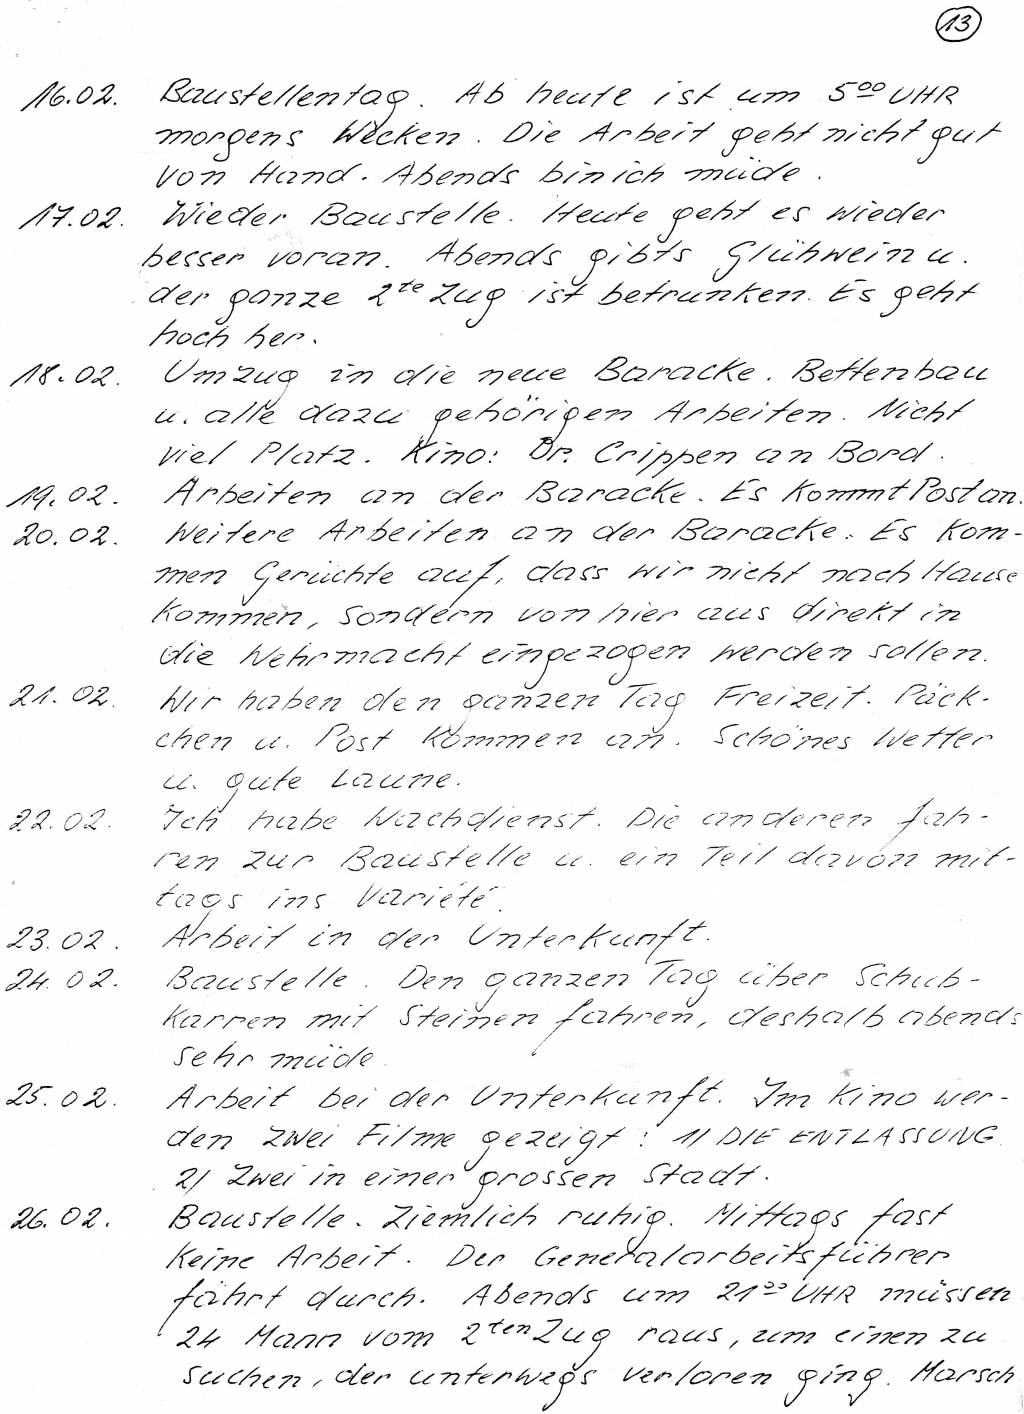 13
16.02. Baustellentag. Ab heute ist um 5⁰⁰ UHR
morgens Wecken. Die Arbeit geht nicht gut
von Hand. Abends bin ich müde.
17.02. Wieder Baustelle. Heute geht es wieder
besser voran. Abends gibts Glühwein u.
der ganze 2te Zug ist betrunken. Es geht
hoch her.
18.02. Umzug in die neue Baracke. Bettenbau
u. alle dazu gehörigen Arbeiten. Nicht
viel Platz. Kino: Dr. Crippen an Bord.
19.02. Arbeiten an der Baracke. Es kommt Post an.
20.02. Weitere Arbeiten an der Baracke. Es kom-
men Gerüchte auf, dass wir nicht nach Hause
kommen, sondern von hier aus direkt in
die Wehrmacht eingezogen werden sollen.
21.02. Wir haben den ganzen Tag Freizeit. Päck-
chen u. Post kommen an. Schönes Wetter
u. gute Laune.
22.02. Ich habe Wachdienst. Die anderen fah-
ren zur Baustelle u. ein Teil davon mit-
tags ins Variété.
23.02. Arbeit in der Unterkunft.
24.02. Baustelle. Den ganzen Tag über Schub-
karren mit Steinen fahren, deshalb abends
sehr müde.
25.02. Arbeit bei der Unterkunft. Im Kino wer-
den zwei Filme gezeigt: 1) DIE ENTLASSUNG
2) Zwei in einer grossen Stadt.
26.02. Baustelle. Ziemlich ruhig. Mittags fast
keine Arbeit. Der Generalarbeitsführer
fährt durch. Abends um 21⁰⁰ UHR müssen
24 Mann vom 2ten Zug raus, um einen zu
suchen, der unterwegs verloren ging. Marsch